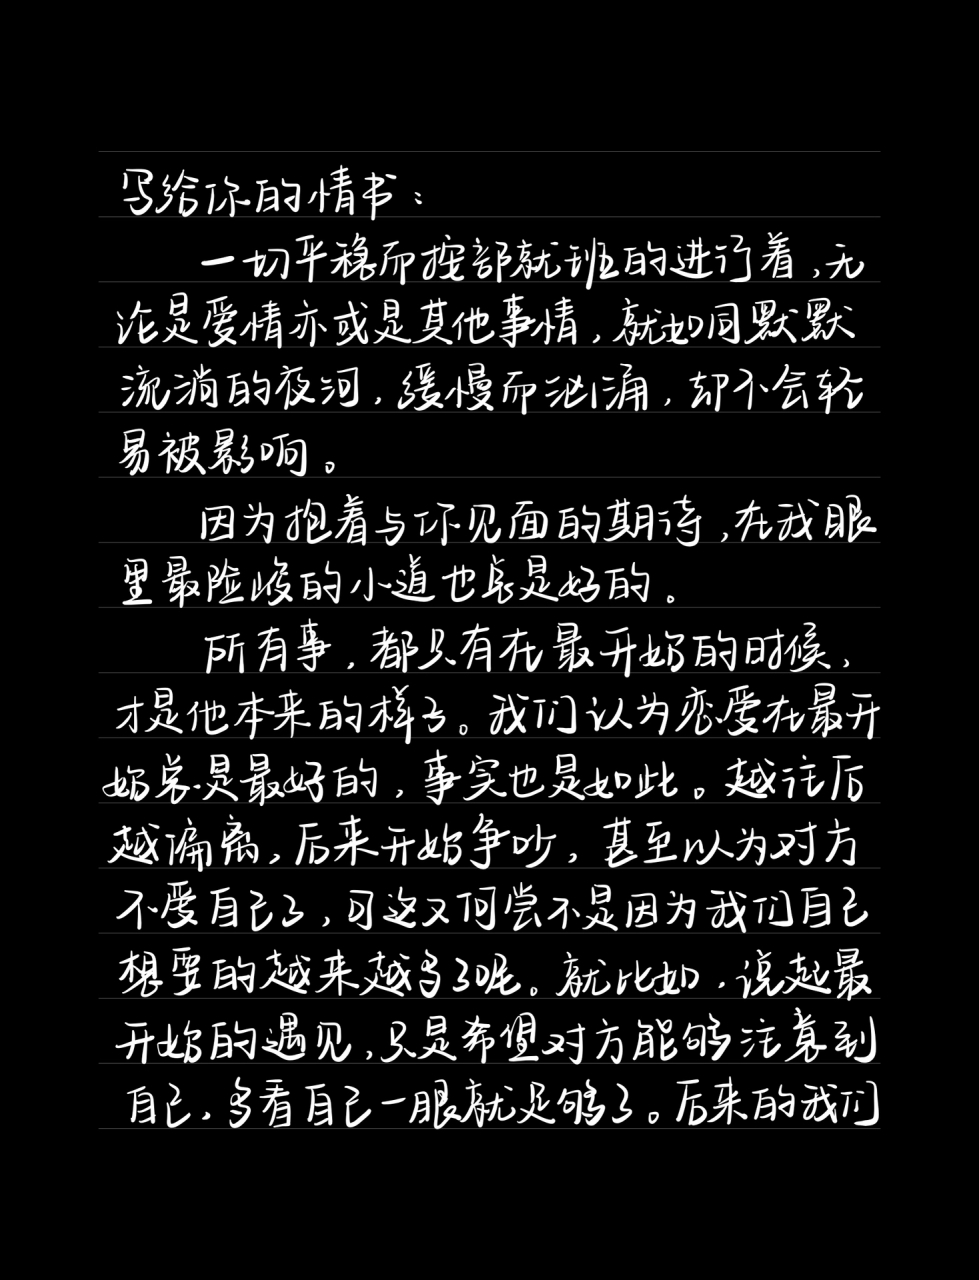 写给你的情书：
一切平稳而按部就班的进行着，无
论是爱情亦或是其他事情，就如同默默
流淌的夜河，缓慢而汹涌，却不会轻
易被影响。
因为抱着与你见面的期待，在我眼
里最险峻的小道也总是好的。
所有事，都只有在最开始的时候，
才是他本来的样子。我们认为恋爱在最开
始总是最好的，事实也是如此。越往后
越偏离，后来开始争吵，甚至以为对方
不爱自己了，可这又何尝不是因为我们自己
想要的越来越多了呢。就比如，说起最
开始的遇见，只是希望对方能够注意到
自己，多看自己一眼就足够了。后来的我们